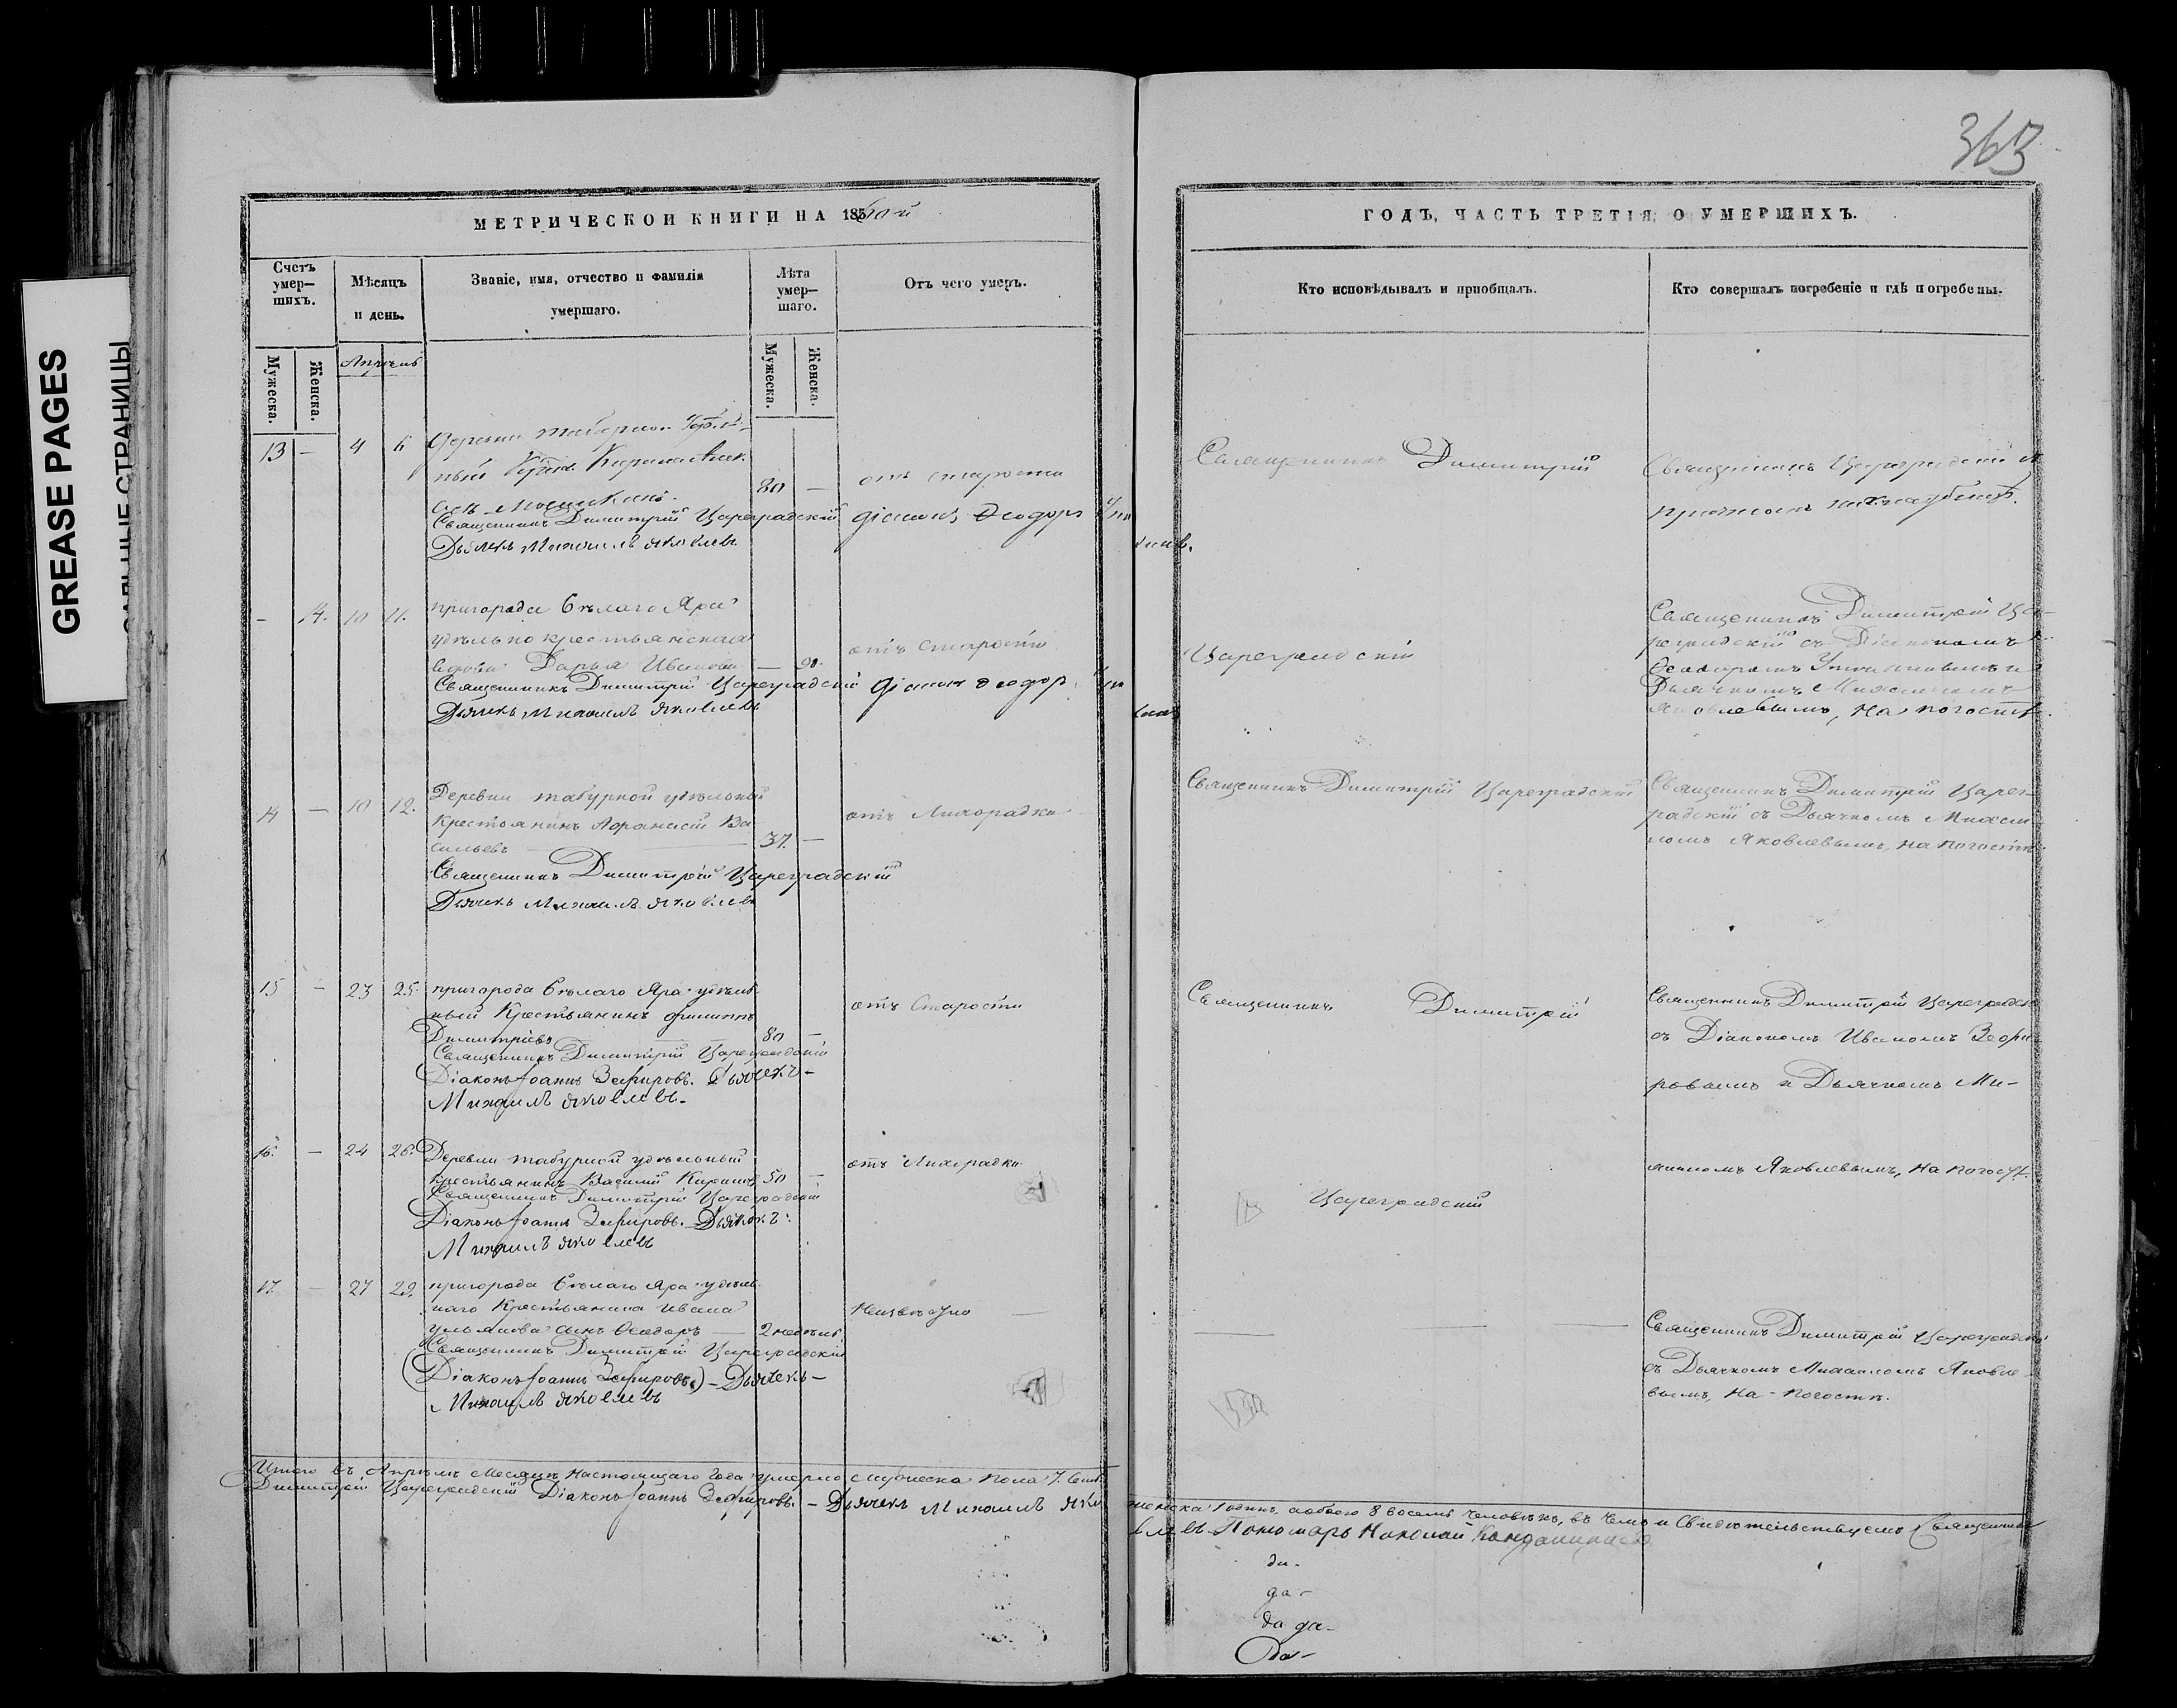 363
МЕТРИЧЕСКОЙ КНИГИ НА 1860-й
ГОДЪ, ЧАСТЬ ТРЕТІЯ, О УМЕРШИХЪ.
Счетъ умер—шихъ.
Мѣсяцъ и день.
Званіе, имя, отчество и фамилія умершаго.
Лѣта умер—шаго.
Отъ чего умеръ.
Кто исповѣдывалъ и пріобщалъ.
Кто совершалъ погребеніе и гдѣ погребены.
Мужеска.
Женска.
Апрѣль
Мужеска.
Женска.
13 — 4 6
Деревни
80 —
отъ старости
Священникъ Димитрій
Священникъ Цареградскій
Священникъ Димитрій Цареградскій Діаконъ Ѳеодоръ
Дьячекъ Михаилъ Яковлевъ
— 14. 10 11.
пригорода Бѣлаго Яра
удѣльно крестьянская
вдова Дарья Иванова — 90.
отъ старости
Цареградскій
Священникъ Димитрій Ца-
реградскій съ Діакономъ
Ѳеодоромъ
Дьячкомъ Михаиломъ
Яковлевымъ, на погостѣ.
Священникъ Димитрій Цареградскій Діаконъ Ѳеодоръ
Дьячекъ Михаилъ Яковлевъ
14 — 10 12.
Деревни Табурной удѣльный
крестьянинъ Афанасій Ва-
сильевъ — 37. —
отъ Лихорадки
Священникъ Димитрій Цареградскій
Священникъ Димитрій Царег-
радскій съ Дьячкомъ Михаи-
ломъ Яковлевымъ, на погостѣ.
Священникъ Димитрій Цареградскій
Дьячекъ Михаилъ Яковлевъ
15 — 23 25.
пригорода Бѣлаго Яра удѣль-
ный Крестьянинъ Филиппъ
Димитріевъ 80 —
отъ Старости
Священникъ Димитрій
Священникъ Димитрій Цареградскій
съ Діакономъ Иваномъ Зефи-
ровымъ и Дьячкомъ Ми-
Священникъ Димитрій Цареградскій
Діаконъ Іоаннъ Зефировъ. Дьячекъ —
Михаилъ Яковлевъ.
16. — 24 26.
Деревни Табурной удѣльный
крестьянинъ Василій 50 —
отъ Лихорадки
Цареградскій
хаиломъ Яковлевымъ, на погостѣ.
Священникъ Димитрій Цареградскій
Діаконъ Іоаннъ Зефировъ. Дьячекъ
Михаилъ Яковлевъ
17. — 27 29.
пригорода Бѣлаго Яра удѣль-
наго Крестьянина Ивана
Ульянова сынъ Ѳеодоръ — 2 недѣль
Неизвѣстно —
Священникъ Димитрій Цареградскій
съ Дьячкомъ Михаиломъ Яковле-
вымъ, на погостѣ.
Священникъ Димитрій Цареградскій
(Діаконъ Іоаннъ Зефировъ.) — Дьячекъ —
Михаилъ Яковлевъ
Итого въ Апрѣлѣ Месяцѣ настоящаго года умерло мужеска пола 7.
женска 1 одинъ, а обоего 8 восемь человѣкъ, въ чемъ и свидѣтельствуемъ Священникъ
Димитрій Цареградскій Діаконъ Іоаннъ Зефировъ. — Дьячекъ Михаилъ Яко
влевъ Пономарь Николай
да-
да-
да да-
Да-
GREASE PAGES
САЛЬНЫЕ СТРАНИЦЫ